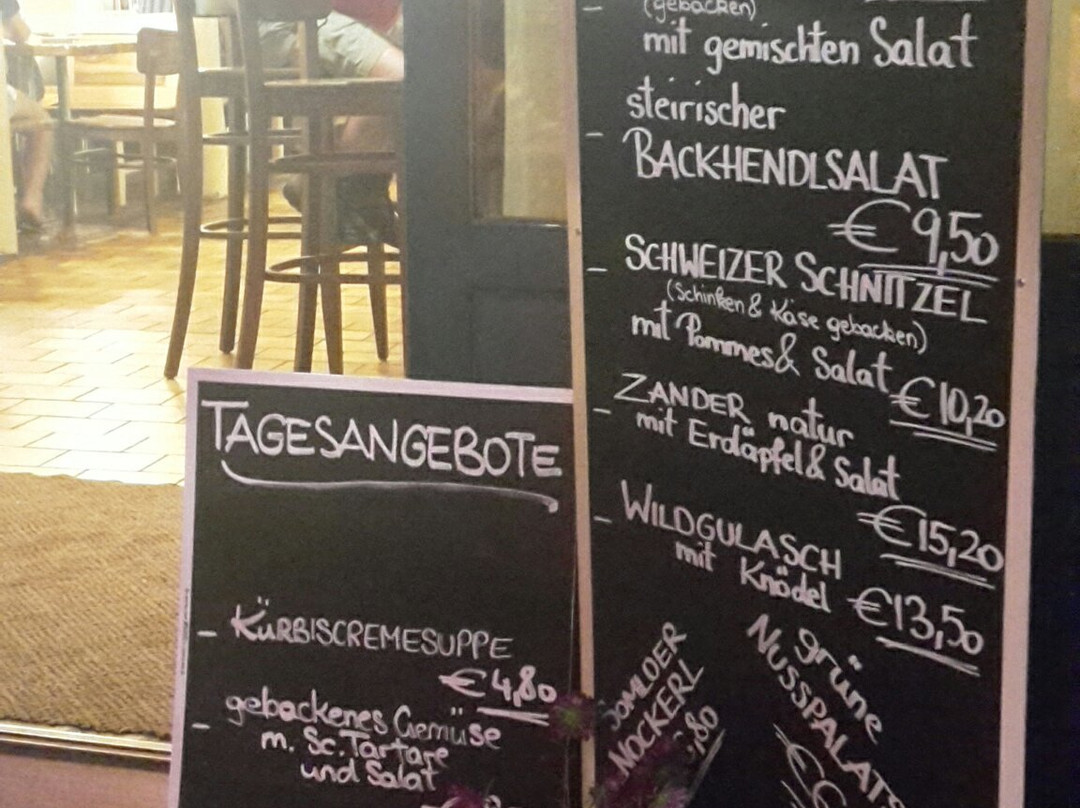 TAGESANGEBOTE
- KÜRBISCREMESUPPE
€ 4,80
- gebackenes Gemüse
m. Sc. Tartare
und Salat
(gebacken)
mit gemischten Salat
steirischer
- BACKHENDLSALAT
€ 9,50
- SCHWEIZER SCHNITZEL
(Schinken & Käse gebacken)
mit Pommes & Salat
€ 10,20
- ZANDER natur
mit Erdäpfel & Salat
€ 15,20
- WILDGULASCH
mit Knödel
€ 13,50
NOCKERL
,80
grüne